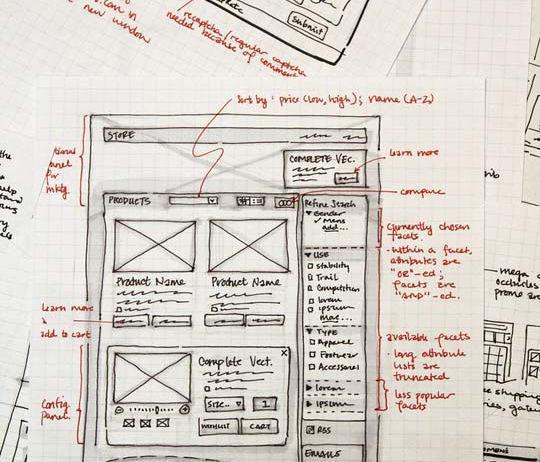 new window
submit
recaptcha/regular captcha
needed because of comment
Sort by: price (low, high); name (A-Z)
STORE
COMPLETE VEC.
learn more
compare
PRODUCTS
Refine Search
Gender
✓ Mens
add...
currently chosen
facets.
• within a facet,
attributes are
"OR"-ed;
facets are
"AND"-ed.
USE
Stability
Trail
Competition
lorem
ipsum
more...
Product Name
Product Name
learn more
&
add to cart
TYPE
Apparel
Footwear
Accessories
available facets
• long attribute
lists are
truncated
less popular
facets
lorem
ipsum
Config.
panel.
Complete Vect.
X
SIZE..
1
WISHLIST
CART
RSS
EMAILS
mega
shipping